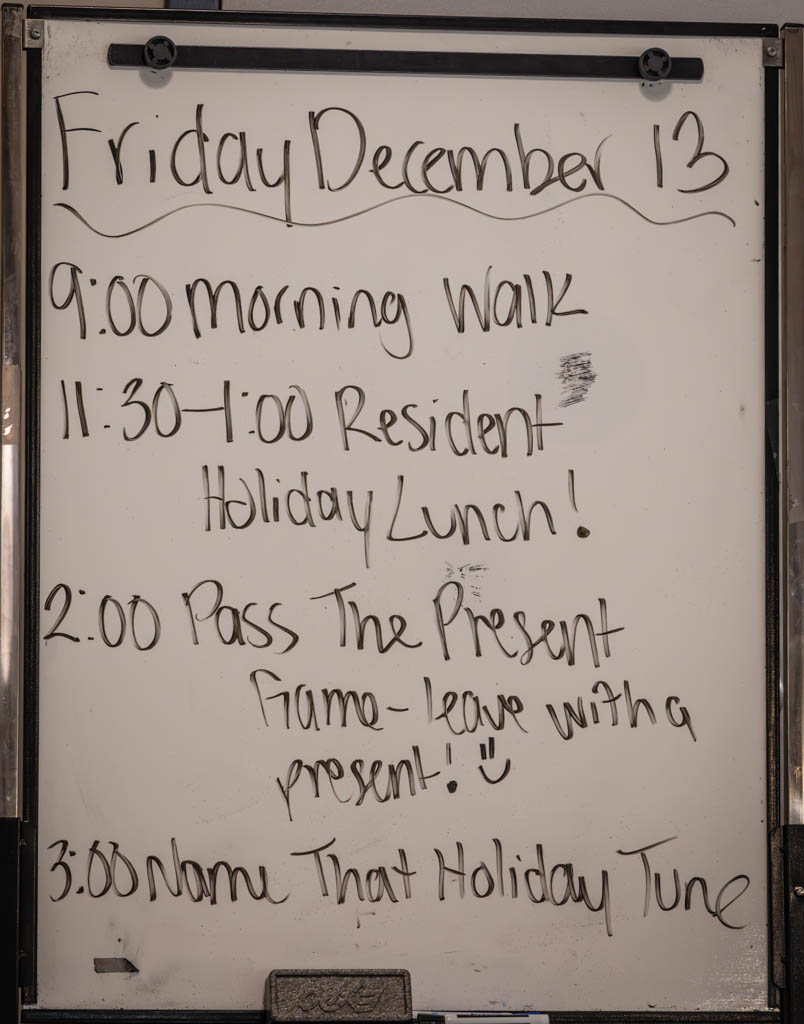 Friday December 13
9:00 morning Walk
11:30-1:00 Resident
Holiday Lunch!
2:00 Pass The Present
Game - leave with a
present! :)
3:00 Name That Holiday Tune